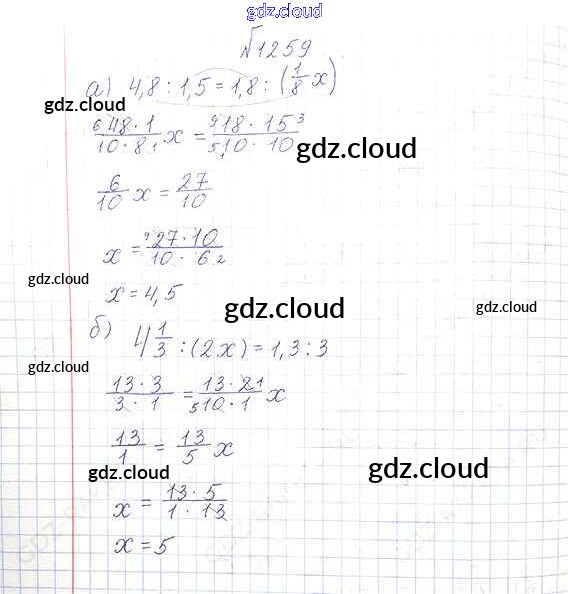 gdz.cloud
№1259
а) 4,8 : 1,5 = 1,8 : (1/8 x)
gdz.cloud
6 48·1 / 10·8 1 x = 9 18·15 3 / 5 10·10
gdz.cloud
6/10 x = 27/10
x = 9 27·10 / 10·6 2
gdz.cloud
x = 4,5
gdz.cloud
gdz.cloud
б) 4 1/3 : (2x) = 1,3 : 3
gdz.cloud
13·3 / 3·1 = 13·2 1 / 5 10·1 x
13/1 = 13/5 x
gdz.cloud
gdz.cloud
x = 13·5 / 1·13
x = 5